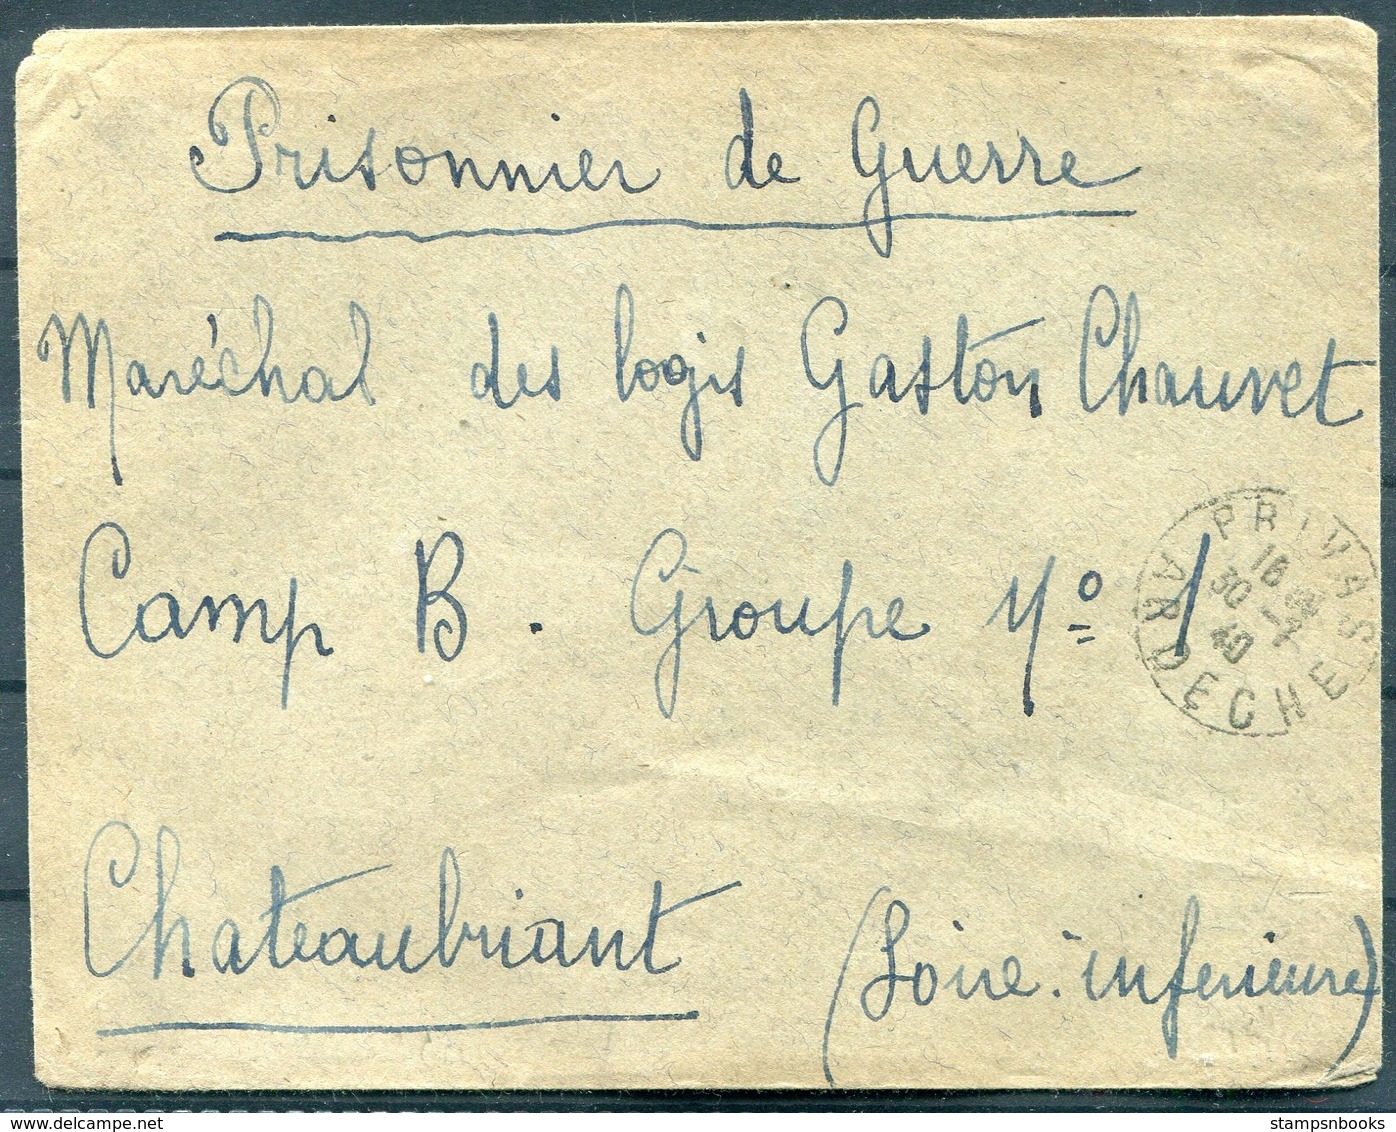 Prisonnier de Guerre
Maréchal des logis Gaston Chauvet
Camp B. Groupe Nº 1
PRIVAS
16
30 - 7
40
ARDECHE
Chateaubriant (Loire-inferieure)
stampsnbooks